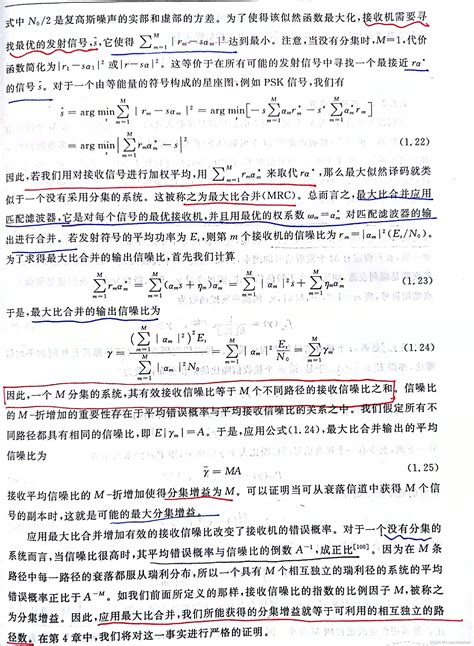 式中 N₀/2 是复高斯噪声的实部和虚部的方差。为了使得该似然函数最大化,接收机需要寻
找最优的发射信号,ŝ,它使得 ∑_{m=1}^{M} |r_m − sα_m|² 达到最小。注意,当没有分集时,M=1,代价
函数简化为 |r₁−sα₁|² 或 |r−sα|²。这等价于在所有可能的发射信号中寻找一个最接近 rα*
的信号 ŝ。对于一个由等能量的符号构成的星座图,例如 PSK 信号,我们有
ŝ = arg min ∑_{m=1}^{M} |r_m − sα_m|² = arg min[−s ∑_{m=1}^{M} α_m r_m* − s* ∑_{m=1}^{M} α_m* r_m]
= arg min |∑_{m=1}^{M} r_m α_m* − s|² (1.22)
因此,若我们用对接收信号进行加权平均,用 ∑_{m=1}^{M} r_m α_m* 来取代 rα*,那么最大似然译码就类
似于一个没有采用分集的系统。这被称之为最大比合并(MRC)。总而言之,最大比合并应用
匹配滤波器,它是对每个信号的最优接收机,并且用最优的权系数 ω_m=α_m* 对匹配滤波器的输
出进行合并。若发射符号的平均功率为 E_s,则第 m 个接收机的信噪比为 r_m=|α_m|²(E_s/N₀)。
为了求得最大比合并的输出信噪比,首先我们计算
∑_{m=1}^{M} r_m α_m* = ∑_{m=1}^{M} (α_m s + η_m)α_m* = ∑_{m=1}^{M} |α_m|² s + ∑_{m=1}^{M} η_m α_m* (1.23)
于是,最大比合并的输出信噪比为
γ = (∑_{m=1}^{M} |α_m|²)² E_s / ∑_{m=1}^{M} |α_m|² N₀ = ∑_{m=1}^{M} |α_m|² E_s/N₀ = ∑_{m=1}^{M} γ_m (1.24)
因此,一个 M 分集的系统,其有效接收信噪比等于 M 个不同路径的接收信噪比之和。信噪比
的 M-折增加的重要性存在于平均错误概率与平均接收信噪比的关系之中。我们假定所有不
同路径都具有相同的信噪比,即 E|γ_m|=A。于是,应用公式(1.24),最大比合并输出的平均
信噪比为
γ̄ = MA (1.25)
接收平均信噪比的 M-折增加使得分集增益为 M。可以证明当可从衰落信道中获得 M 个信
号的副本时,这就是可能的最大分集增益。
应用最大比合并增加有效的接收信噪比改变了接收机的错误概率。对于一个没有分集的
系统而言,当信噪比很高时,其平均错误概率与信噪比的倒数 A⁻¹,成正比[100]。因为在 M 条
路径中每一路径的衰落都服从瑞利分布,所以一个具有 M 个相互独立的瑞利径的系统的平均
错误概率正比于 A⁻ᴹ。如我们前面所定义的那样,接收信噪比的指数的比例因子 M,被称之
为分集增益。因此,应用最大比合并,我们所能获得的分集增益就等于可利用的相互独立的路
径数。在第 4 章中,我们将对这一事实进行严格的证明。